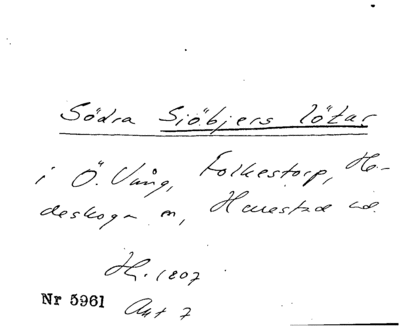 Södra Sjöbjers lötar
i Ö. Vång, Folkestorp, He-
deskoga m, Harestad
H. 1807
Nr 5961 Akt 7